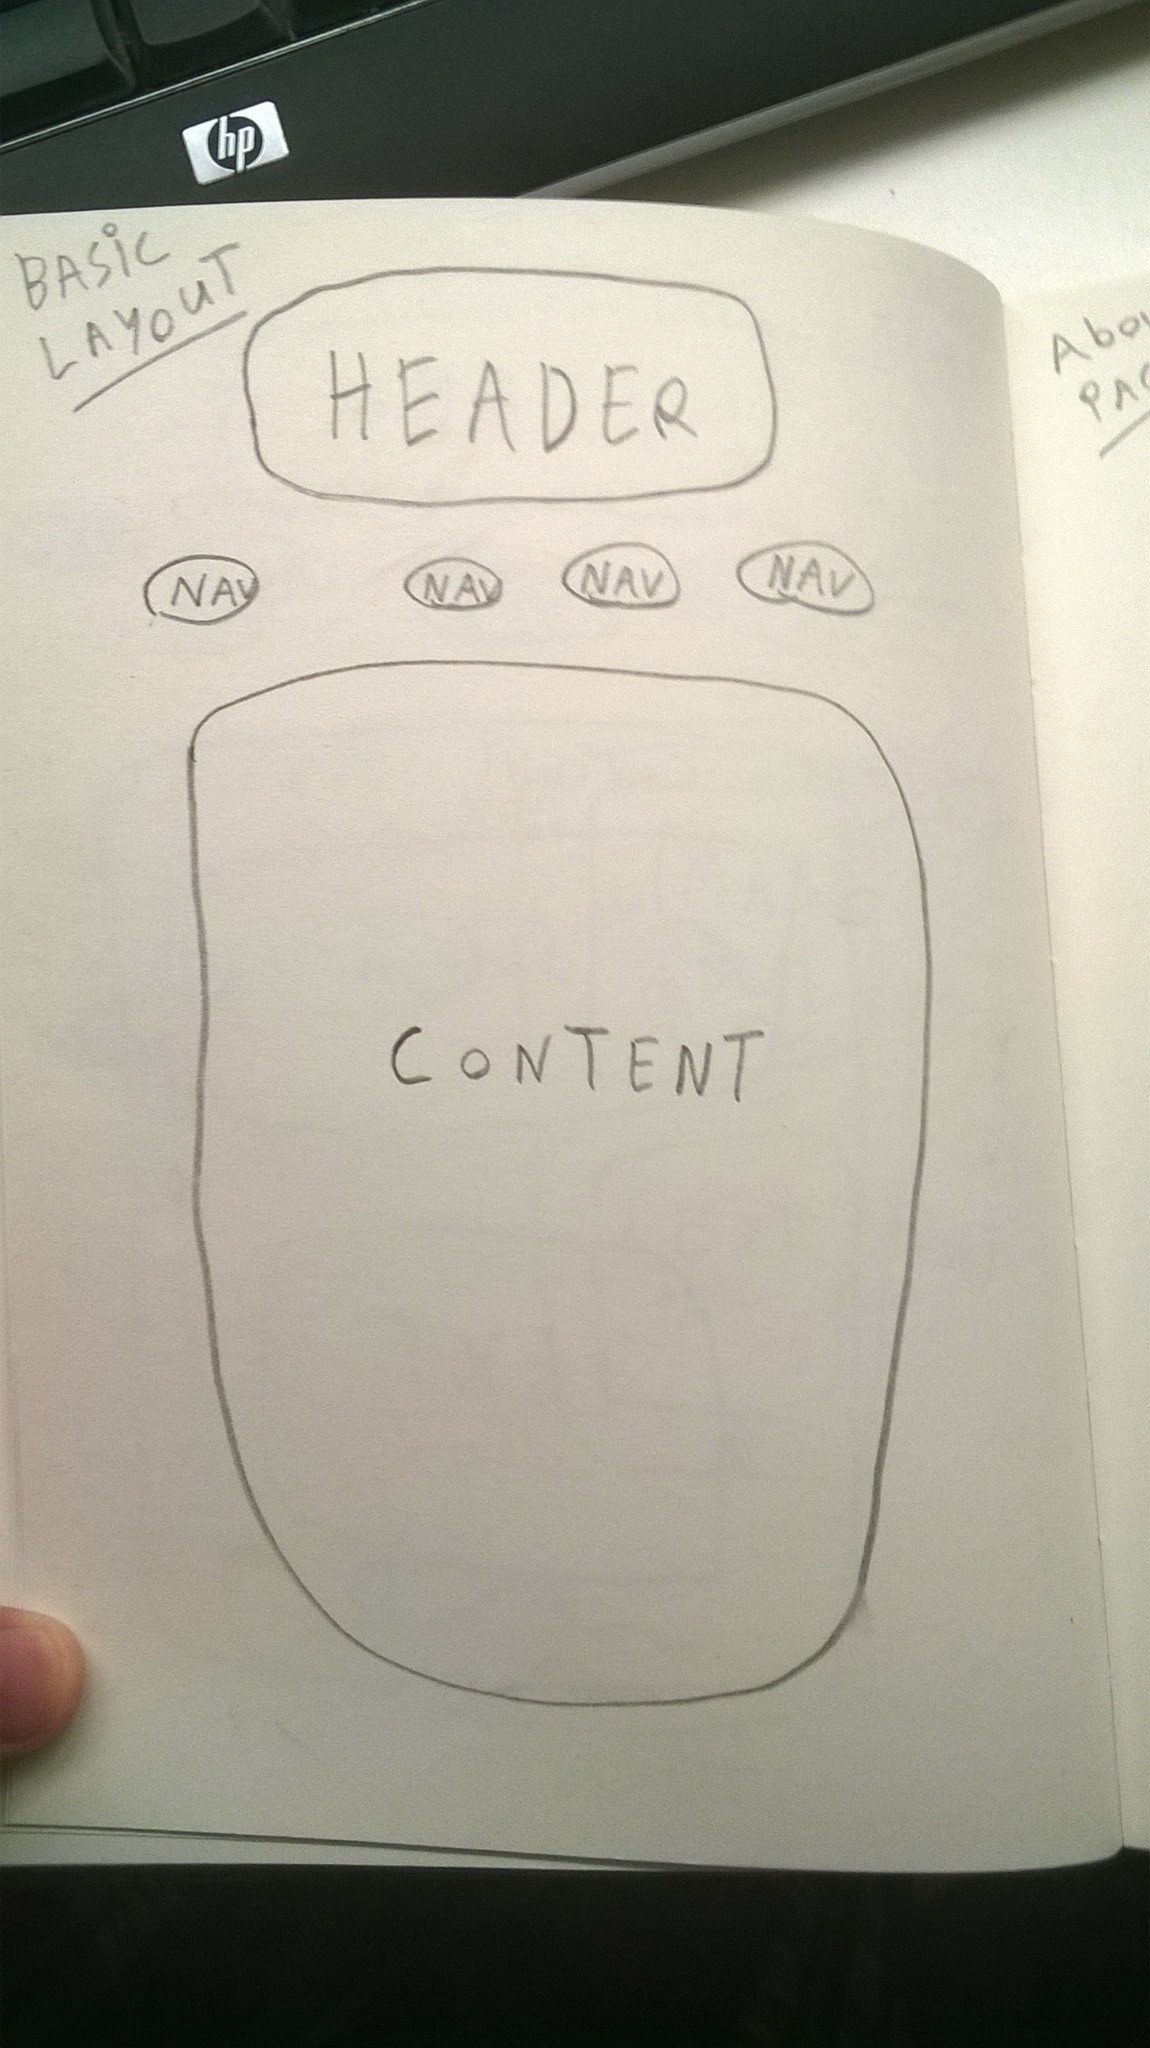 hp
BASIC
LAYOUT
HEADER
NAV NAV NAV NAV
CONTENT